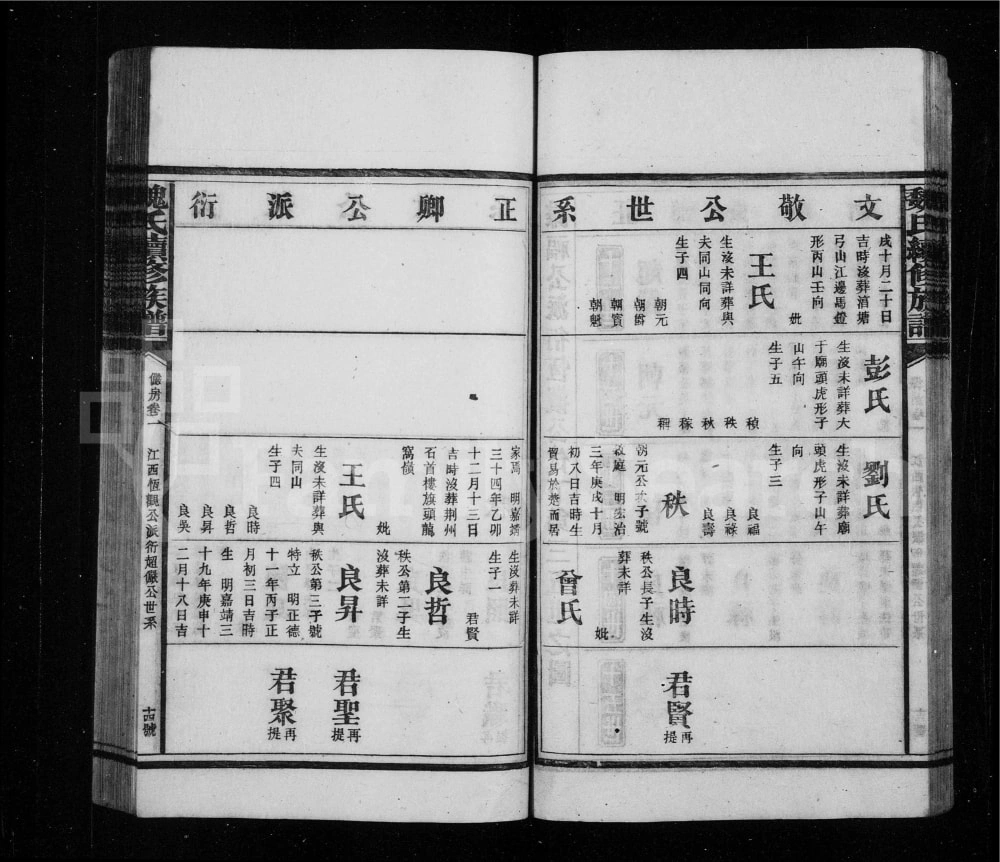 魏氏續修族譜
文敬公世系
戌十月二十日
吉時沒葬湇塘
弓山江邊馬鐙
形丙山壬向
妣
王氏
生沒未詳葬與
夫同山同向
生子四
朝元
朝爵
朝賓
朝魁
彭氏
生沒未詳葬大
于廟頭虎形子
山午向
生子五
稹
秩
秋
稼
稛
劉氏
生沒未詳葬廟
頭虎形子山午
向
生子三
良福
良祿
良壽
秩
朝元公次子號
庭 明宏治
三年庚戌十月
初八日吉時生
貿易於楚而居
良時
秩公長子生沒
葬未詳
妣
曾氏
君賢
再提
正卿公派衍
家焉 明嘉靖
三十四年乙卯
十二月十三日
吉時沒葬荆州
石首樓旗頭龍
窩嶺
妣
王氏
生沒未詳葬與
夫同山
生子四
良時
良哲
良昇
良吳
生沒葬未詳
生子一
君賢
良哲
秩公第二子生
沒葬未詳
良昇
秩公第三子號
特立 明正德
十一年丙子正
月初三日吉時
生 明嘉靖三
十九年庚申十
二月十八日吉
君聖
再提
君聚
再提
魏氏續修族譜
儼房卷一
江西恆觀公派衍超儼公世系
十四號